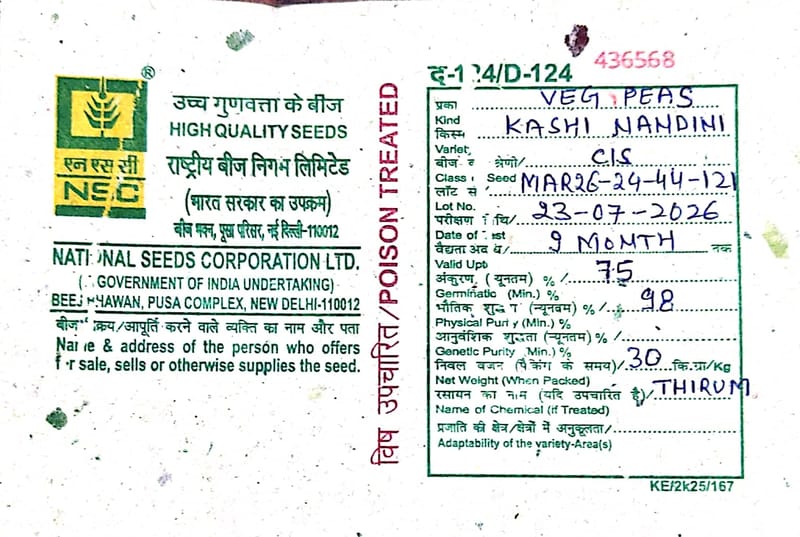 ®
एन एस सी
NSC
उच्च गुणवत्ता के बीज
HIGH QUALITY SEEDS
राष्ट्रीय बीज निगम लिमिटेड
(भारत सरकार का उपक्रम)
बीज भवन, पूसा परिसर, नई दिल्ली-110012
NATI NAL SEEDS CORPORATION LTD.
( GOVERNMENT OF INDIA UNDERTAKING)
BEEJ HAWAN, PUSA COMPLEX, NEW DELHI-110012
बीज क्रय/आपूर्ति करने वाले व्यक्ति का नाम और पता
Name & address of the person who offers
f r sale, sells or otherwise supplies the seed.
विष उपचारित/POISON TREATED
436568
द-124/D-124
प्रका VEG PEAS
Kind
किस्म KASHI NANDINI
Variet
बीज श्रेणी/ CIS
Class Seed
लॉट सं MAR26-24-44-121
Lot No.
परीक्षण थि/ 23-07-2026
Date of est
वैद्यता अव 9 MONTH नक
Valid Upt
अंकुरण, (यूनतम) % /. 75
Germinatic (Min.) %
भौतिक शुद्ध (न्यूनतम) % / 98
Physical Puri y (Min.) %
आनुवंशिक शुद्धता (न्यूनतम) % /
Genetic Purity Min.) %
निवल वजन (पैकिंग के समय)/ 30 कि.ग्रा/Kg
Net Weight (When Packed)
रसायन का नाम (यदि उपचारित है)/ THIRUM
Name of Chemical (if Treated)
प्रजाति की क्षेत्र/क्षेत्रों में अनुकूलता/
Adaptability of the variety-Area(s)
KE/2k25/167